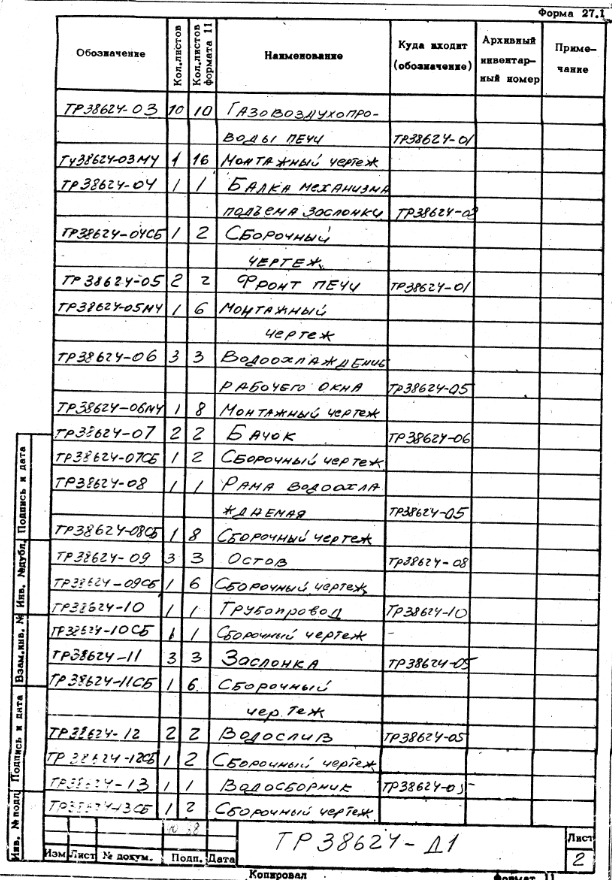 Форма 27.1
Обозначение Кол.листов Кол.листов формата 11 Наименование Куда входит (обозначение) Архивный инвентар- ный номер Приме- чание
ТР38624-03 10 10 Газовоздухопро-
воды печи ТР38624-01
ТУ38624-03МЧ 1 16 Монтажный чертеж
ТР38624-04 1 1 Балка механизма
подъема заслонки ТР38624-03
ТР38624-04СБ 1 2 Сборочный
чертеж
ТР38624-05 2 2 Фронт печи ТР38624-01
ТР38624-05МЧ 1 6 Монтажный
чертеж
ТР38624-06 3 3 Водоохлаждение
рабочего окна ТР38624-05
ТР38624-06МЧ 1 8 Монтажный чертеж
ТР38624-07 2 2 Бачок ТР38624-06
ТР38624-07СБ 1 2 Сборочный чертеж
ТР38624-08 1 1 Рама водоохла
ждаемая ТР38624-05
ТР38624-08СБ 1 8 Сборочный чертеж
ТР38624-09 3 3 Остов ТР38624-08
ТР38624-09СБ 1 6 Сборочный чертеж
ТР38624-10 1 1 Трубопровод ТР38624-10
ТР38624-10СБ 1 1 Сборочный чертеж -
ТР38624-11 3 3 Заслонка ТР38624-05
ТР38624-11СБ 1 6 Сборочный
чертеж
ТР38624-12 2 2 Водослив ТР38624-05
ТР38624-12СБ 1 2 Сборочный чертеж
ТР38624-13 1 1 Водосборник ТР38624-05
ТР38624-13СБ 1 2 Сборочный чертеж
Инв. № подл Подпись и дата Взам.инв. № Инв. №дубл. Подпись и дата
Изм Лист № докум. Подп. Дата
ТР38624-Д1
Лист
2
Копировал Формат 11